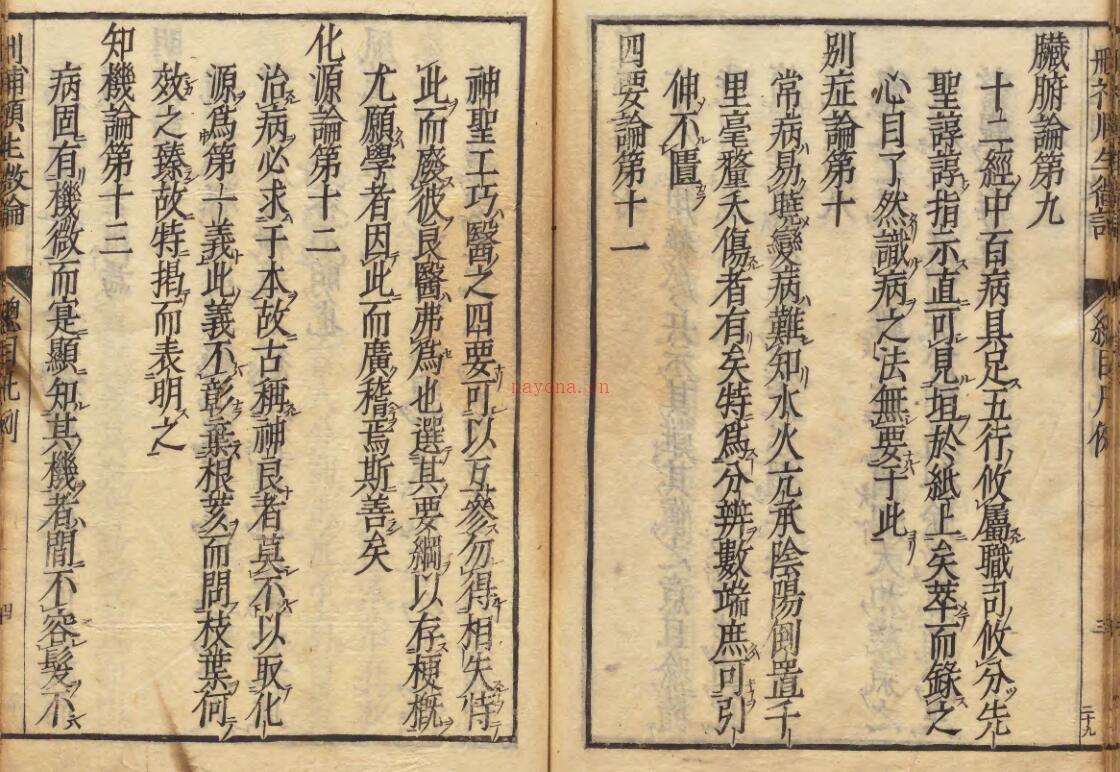 臟腑論第九
十二經中百病具足五行攸屬職司攸分先
聖諄諄指示直可見垣於紙上矣萃而錄之
心目了然識病之法無要于此
別症論第十
常病易曉變病難知水火亢承陰陽倒置千
里毫釐夭傷者有矣特為分辨數端庶可引
伸不匱
四要論第十一
神聖工巧醫之四要可以互參勿得相失恃
此而廢彼良醫弗為也選其要綱以存梗概
尤願學者因此而廣稽焉斯善矣
化源論第十二
治病必求于本故古稱神良者莫不以取化
源為第一義此義不彰棄根荄而問枝葉何
效之臻故特揭而表明之
知機論第十三
病固有機微而寔顯知其機者間不容髮不
刪補頤生微論
總目凡例
四
nayona.cn